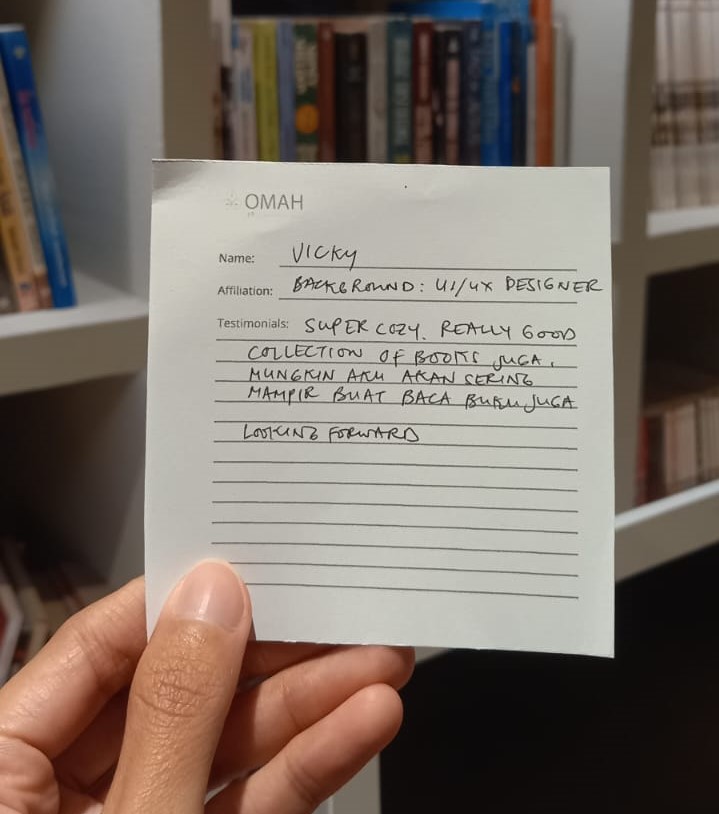 OMAH
Name: VICKY
Affiliation: BACKGROUND: UI/UX DESIGNER
Testimonials: SUPER COZY. REALLY GOOD
COLLECTION OF BOOKS JUGA.
MUNGKIN AKU AKAN SERING
MAMPIR BUAT BACA BUKU JUGA
LOOKING FORWARD